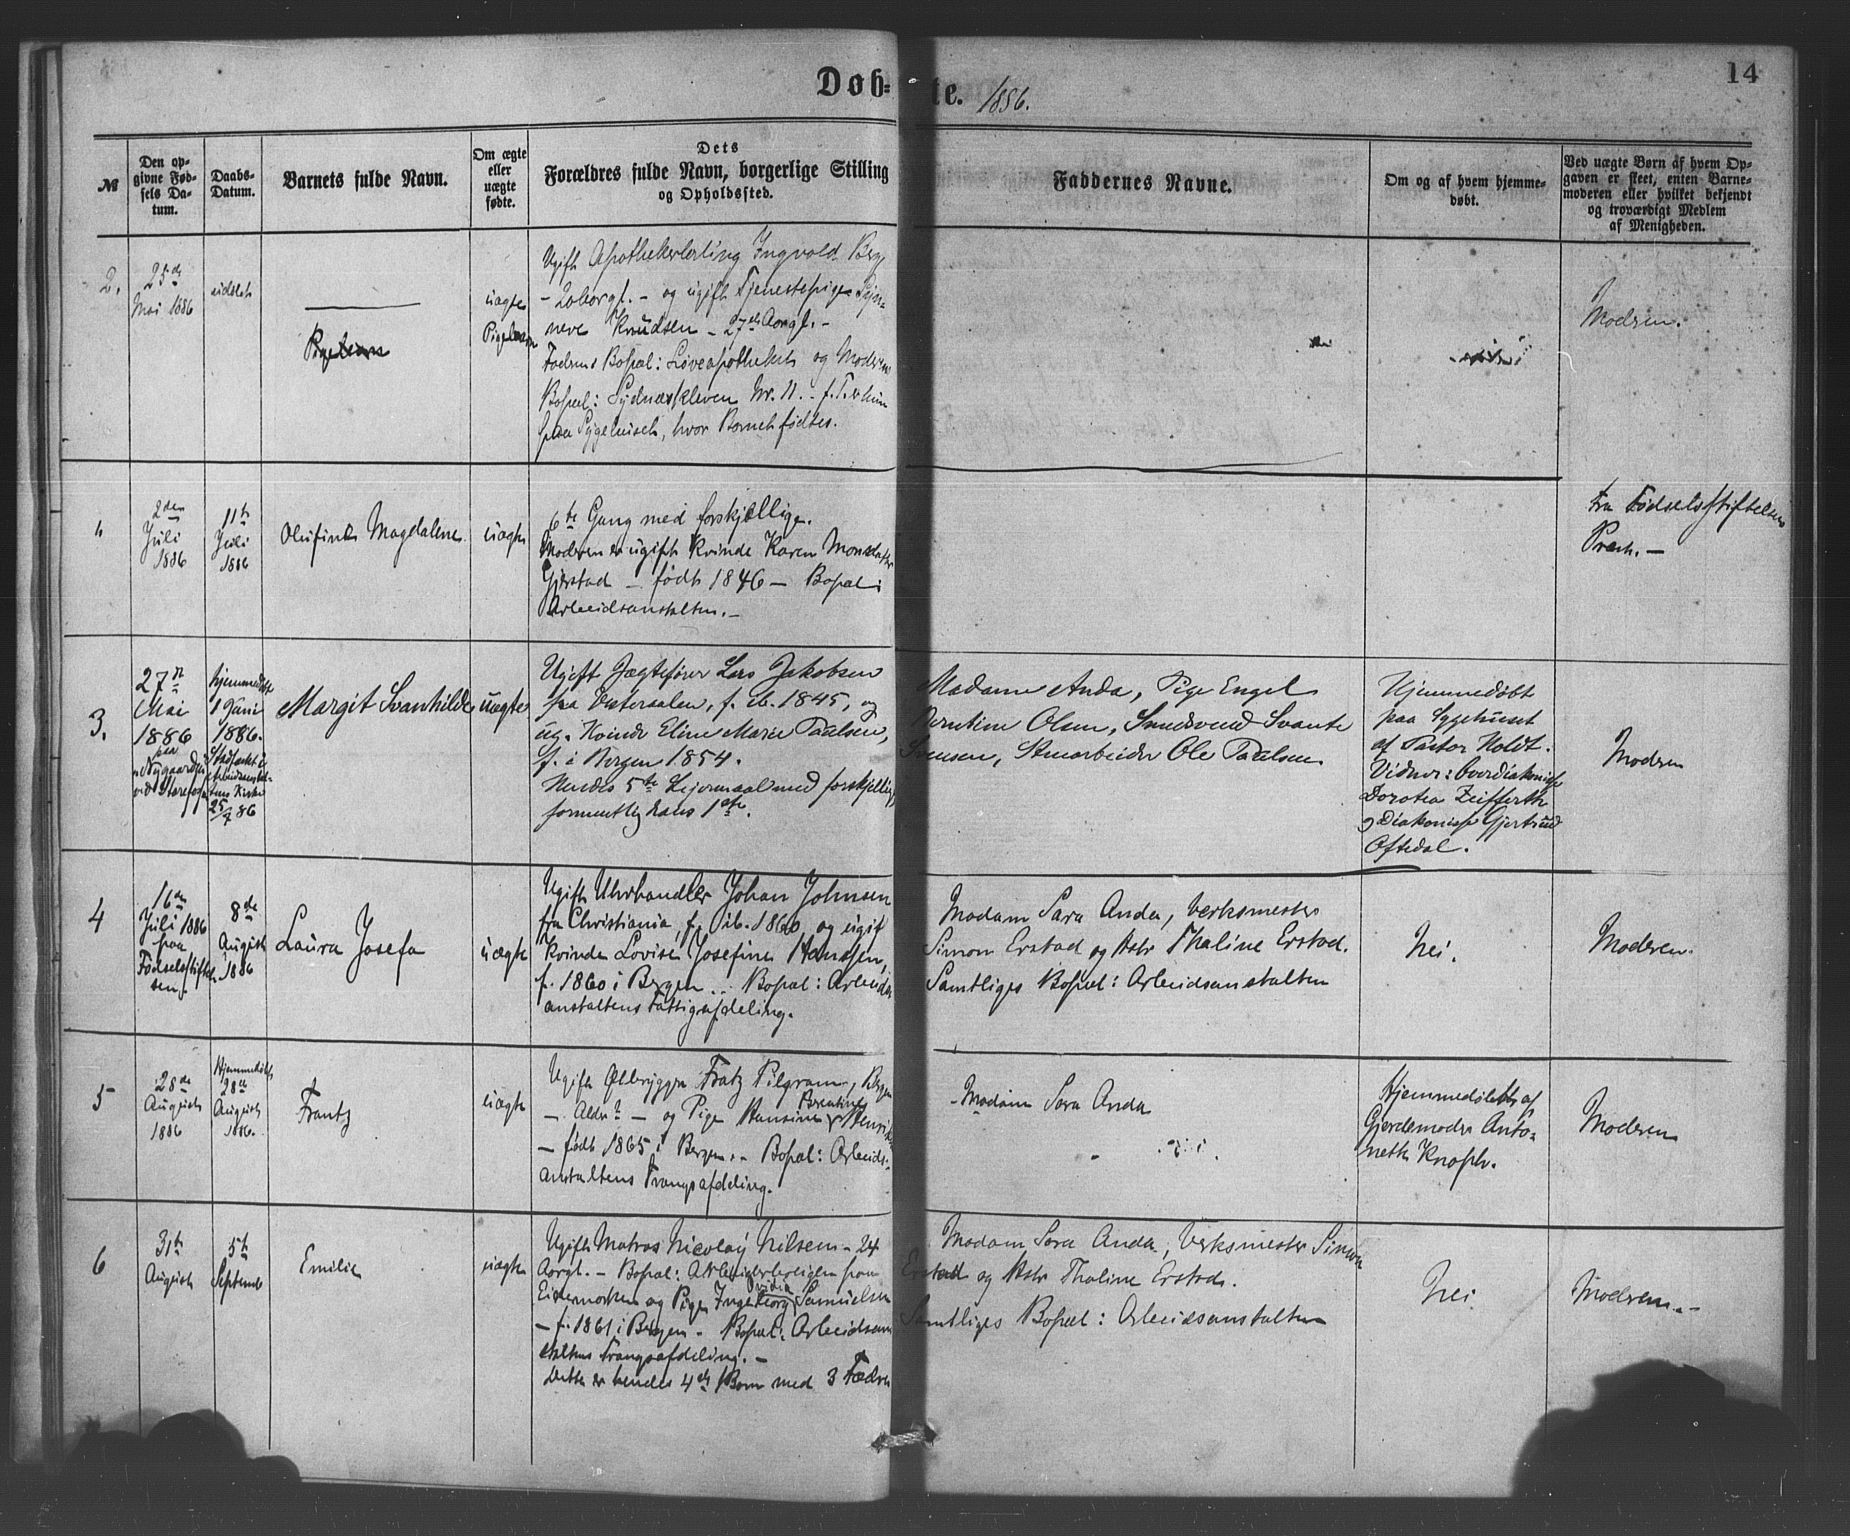 Døb=te. 1886.
14
№
Den op-
givne Fød-
sels Da-
tum.
Daabs-
Datum.
Barnets fulde Navn.
Om ægte
eller
uægte
fødte.
Dets
Forældres fulde Navn, borgerlige Stilling
og Opholdssted.
Faddernes Navne.
Om og af hvem hjemme-
døbt.
Ved uægte Børn af hvem Op-
gaven er skeet, enten Barne-
moderen eller hvilket bekjendt
og troværdigt Medlem
af Menigheden.
2.
25de
Mai 1886
udslet
Pigebarn
uægte
Pigebarn
Ugift Apothekerlærling Ingvold Berg
- 20 Aar gl. - og ugift Tjenestepige
Knudsen - 27 Aar gl. -
Faderens Bopæl: Løveapotheket og Moderens
Bopæl: Sydnæskleven Nr. 11. - f. T. er hun
paa Sygehuset, hvor Barnet fødtes.
Modren.
"
2den
Juli
1886
11te
Juli
1886
Olufine Magdalene
uægte
6te Gang med forskjellige.
Moderen er ugift Kvinde Karen Monsdatter
Gjerstad - født 1846 - Bopæl:
Arbeidsanstalten. -
fra Fødselsstiftelsens
Præst. -
3.
27n
Mai
1886
paa
Nygaarden
ved Storefos
hjemmedøbt
1 Juni
1886.
Stadfæstet i
Arbeidsanstal-
tens Kirke
25/7 86
Margit Svanhilde
uægte
Ugift Jægtefører Lars Jakobsen
fra Vesteraalen, f. ib. 1845, og
ug. Kvinde Eline Marie Paulsen,
f. i Bergen 1854.
Hendes 5te Leiermaal med forskjellige,
formentlig hans 1ste.
Madame Anda, Pige Engel
Berntine Olsen, Smedsvend Svante
Svensen, Stenarbeider Ole Paulsen.
Hjemmedøbt
paa Sygehuset
af Pastor Holdt.
Vidner: Overdiakonisse
Dorotea Zeifferth
og Diakonisse Gjertrud
Oftedal.
Modren
4
16de
Juli 1886
paa
Fødselsstiftel-
sen
8de
August
1886
Laura Josefa
uægte
Ugift Uhrhandler Johan Johnsen
fra Christiania, f. ib. 1860, og ugift
Kvinde Lovise Josefine Hanssen,
f. 1860 i Bergen .. Bopæl: Arbeids-
anstaltens Fattigafdeling.
Madam Sara Anda, Verksmester
Simon Erstad og Astr Thaline Erstad.
Samtliges Bopæl: Arbeidsanstalten
Nei.
Moderen.
5
28de
August
1886
Hjemmedøbt
28de
August
1886.
Frantz
uægte
Ugift Ølbrygger Fratz Pilgram, Bergen
- Alder? - og Pige Hansine Berntine Henriks
- født 1865 i Bergen. - Bopæl: Arbeids-
anstaltens Tvangsafdeling.
- Madam Sara Anda
Hjemmedøbt af
Gjordemoder Anto-
nette Knoph.
Moderen
6
31te
August
5te
September
Emilie
uægte
Ugift Matros Nicolay Nilsen - 24
Aar gl. - Bopæl: Arbeiderboliger paa
og Pige Ingeborg Ovidia Samuelsen
- f. 1861 i Bergen - Bopæl: Arbeidsan
staltens Tvangsafdeling. -
Dette er hendes 4de Barn med 3 Fædre
Madam Sara Anda, Verksmester Simon
Erstad og Astr Thaline Erstad.
Samtliges Bopæl: Arbeidsanstalten
Nei
Modren. -